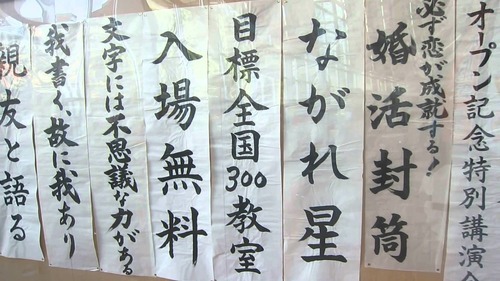 オープン記念特別講演会
必ず恋が成就する！
婚活封筒
ながれ星
目標全国300教室
入場無料
文字には不思議な力がある
我書く、故に我あり
親友と語る